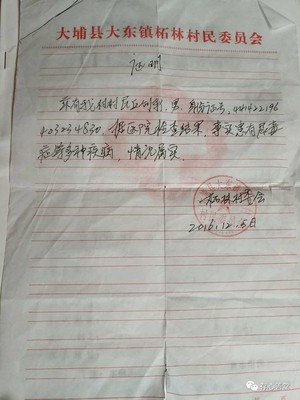 大埔县大东镇柘林村民委员会
证明
兹有我柘村民丘剑彩，男，身份证号，441422196
403234830，据医院检查结果，事实患有尿毒
症等多种疾病，情况属实
柘林村委会
2016.12.5日